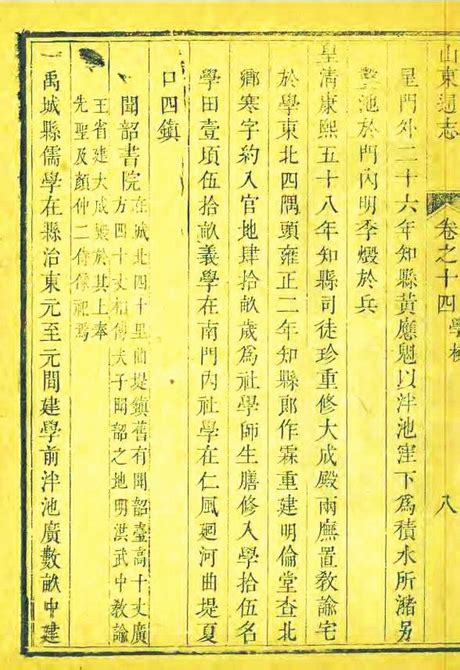 山東通志 卷之十四 學校 八
星門外二十六年知縣黃應魁以泮池窪下爲積水所瀦另
鑿池於門內明季燬於兵
皇清康熙五十八年知縣司徒珍重修大成殿兩廡置敎諭宅
於學東北四隅頭雍正二年知縣郎作霖重建明倫堂查北
鄉寒字約入官地肆拾畝歲爲社學師生膳修入學拾伍名
學田壹頃伍拾畝義學在南門內社學在仁風廻河曲堤夏
口四鎮
聞韶書院
在城北四十里曲堤鎮舊有聞韶臺高十丈廣
方四十丈相傳夫子聞韶之地明洪武中敎諭
王省建大成殿於其上奉
先聖及顏仲二侍像祀焉
一禹城縣儒學在縣治東元至元間建學前泮池廣數畝中建